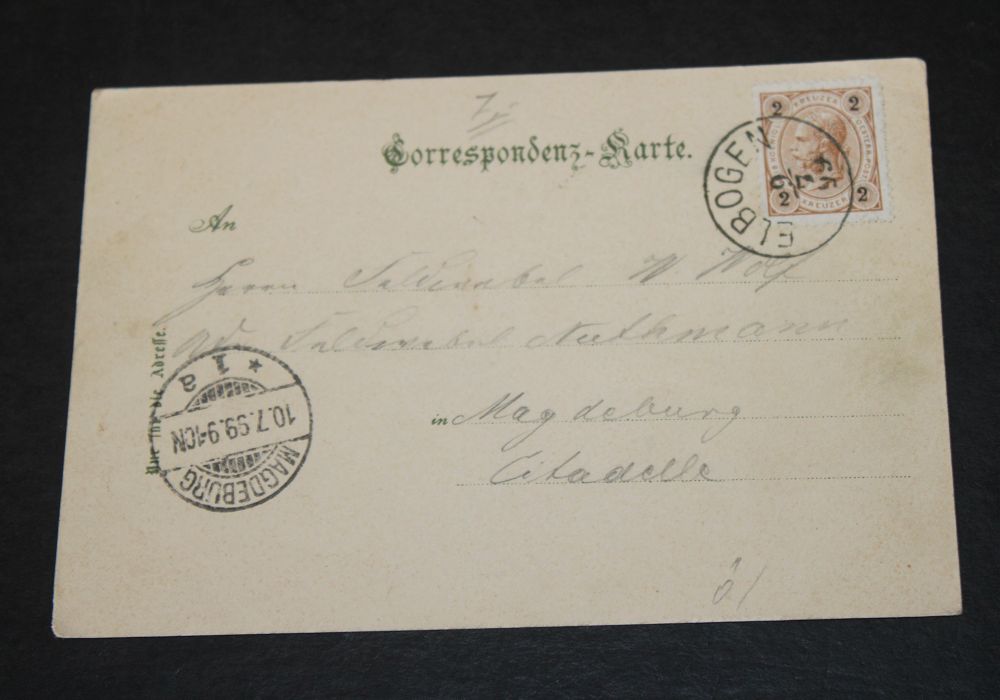 Correspondenz-Karte.
2 KREUZER 2
2 KREUZER 2
ELBOGEN
9/7 99
An
Herrn Feldwebel W. Wolf
Feldwebel Nathmann
in Magdeburg
Citadelle
Nur für die Adresse.
MAGDEBURG
10.7.99.9-10N
* 1 a